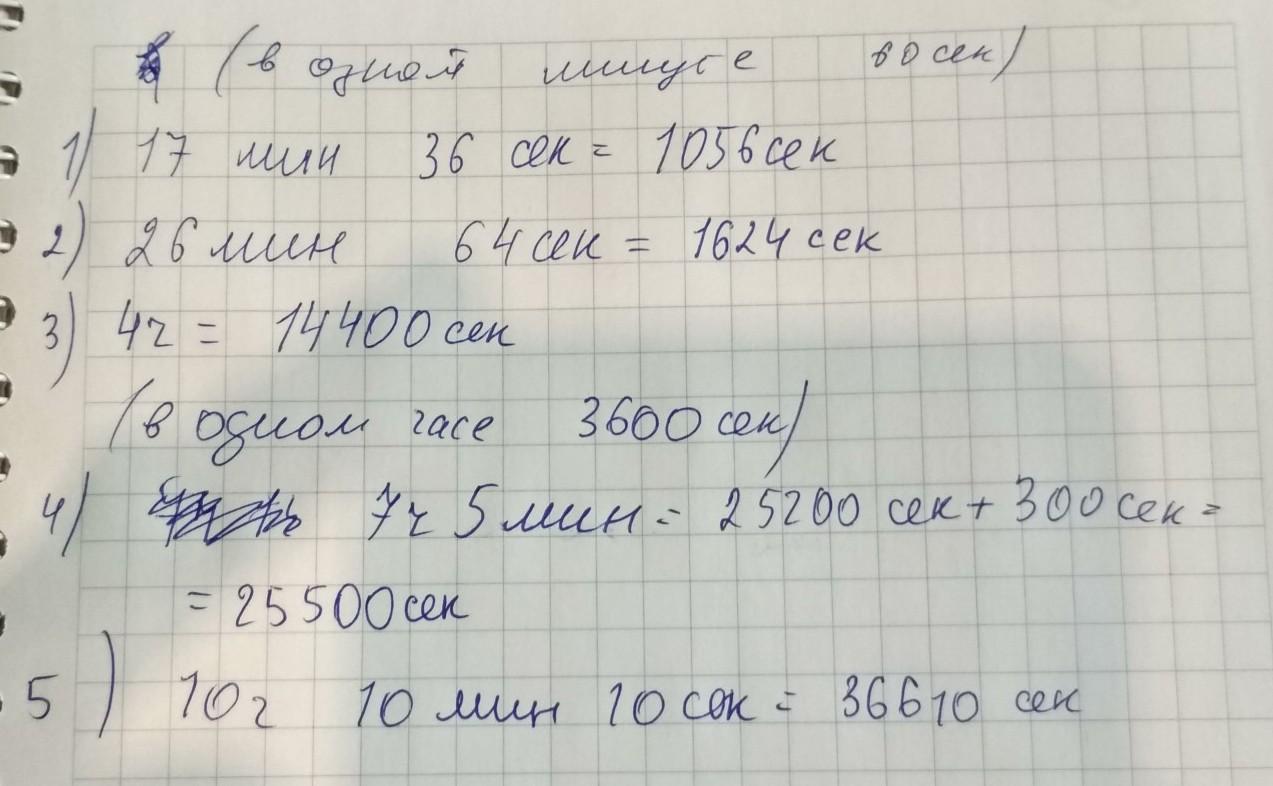 (в одной минуте 60 сек)
1) 17 мин 36 сек = 1056 сек
2) 26 мин 64 сек = 1624 сек
3) 4ч = 14400 сек
(в одном часе 3600 сек)
4) 7ч 5 мин = 25200 сек + 300 сек =
= 25500 сек
5) 10ч 10 мин 10 сек = 36610 сек